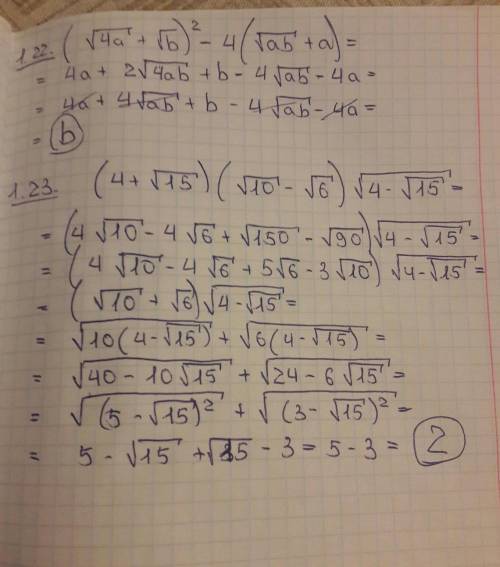 1.22. (√4a + √b)² - 4(√ab + a) =
= 4a + 2√4ab + b - 4√ab - 4a =
= 4a + 4√ab + b - 4√ab - 4a =
= b
1.23. (4 + √15)(√10 - √6)√4 - √15 =
= (4√10 - 4√6 + √150 - √90)√4 - √15 =
= (4√10 - 4√6 + 5√6 - 3√10)√4 - √15 =
= (√10 + √6)√4 - √15 =
= √10(4 - √15) + √6(4 - √15) =
= √40 - 10√15 + √24 - 6√15 =
= √(5 - √15)² + √(3 - √15)² =
= 5 - √15 + √15 - 3 = 5 - 3 = 2